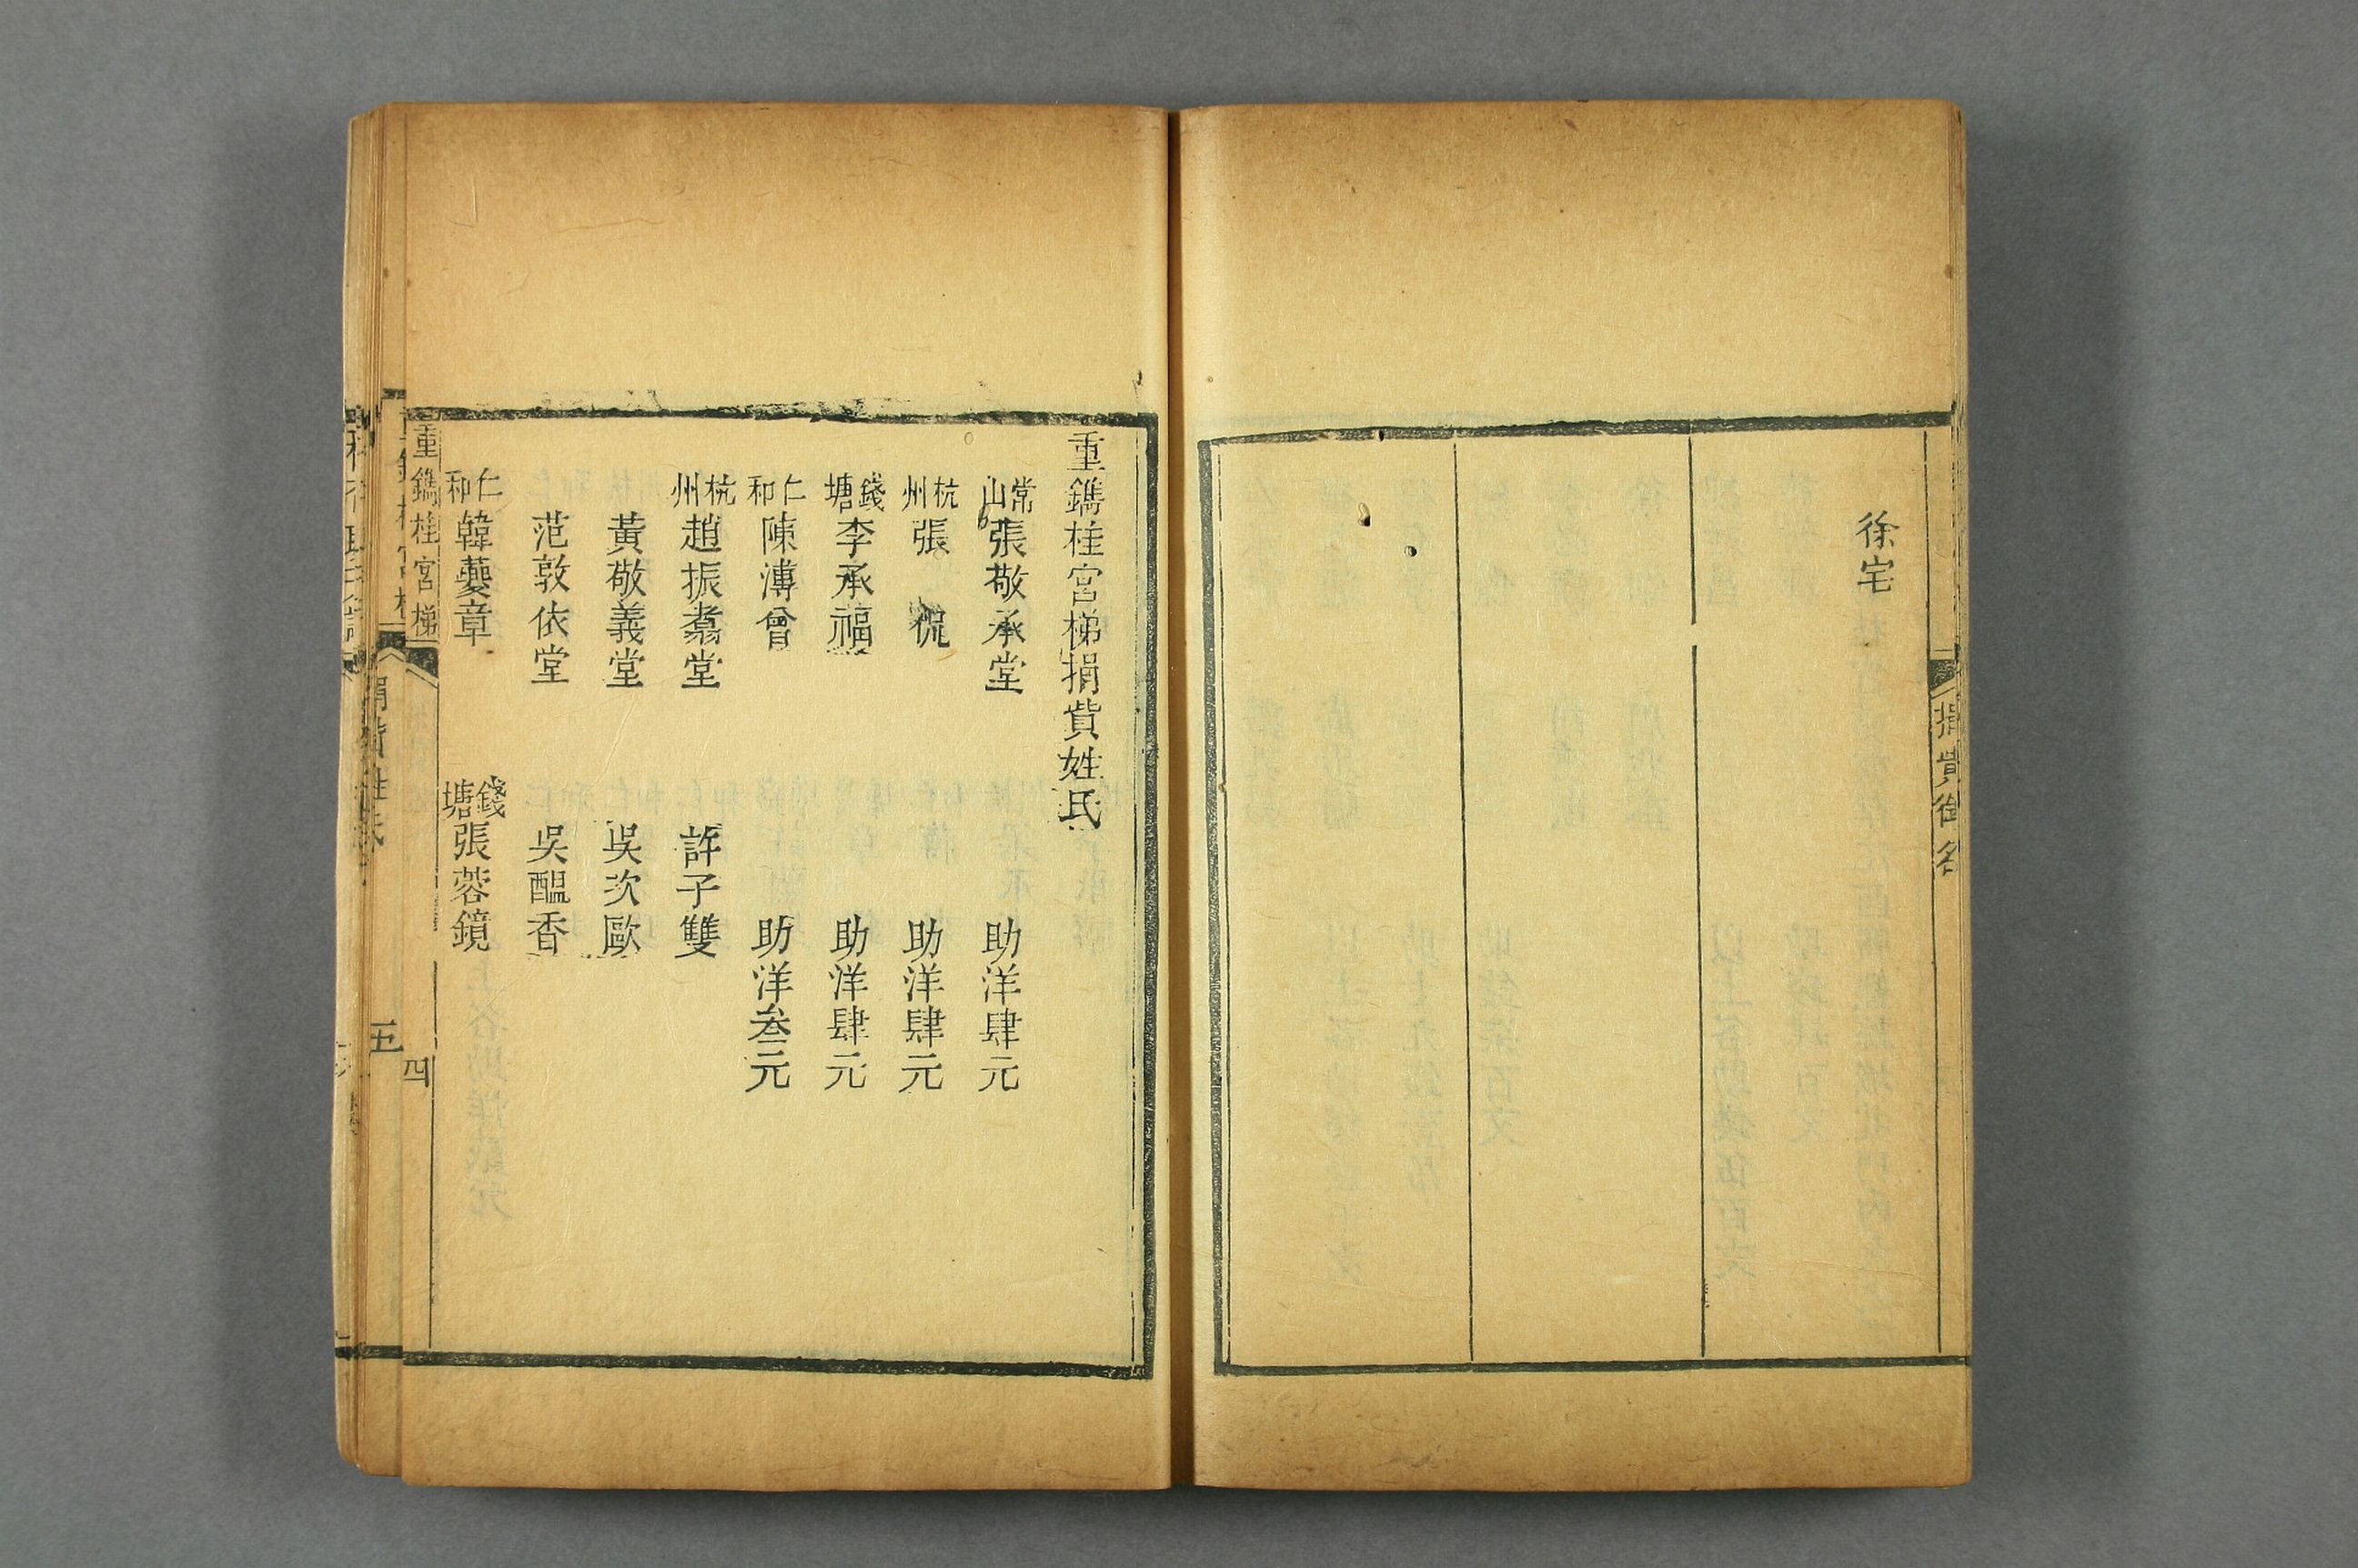 徐宅
捐貲銜名
重鐫桂宮梯捐貲姓氏
常山張敬承堂 助洋肆元
杭州張 祝 助洋肆元
錢塘李承福 助洋肆元
仁和陳溥曾 助洋叁元
杭州趙振翥堂 許子雙
黃敬義堂 吳次歐
范敦依堂 吳醞香
仁和韓夔章 錢塘張蓉鏡
重鐫桂宮梯
四
捐貲姓氏
五